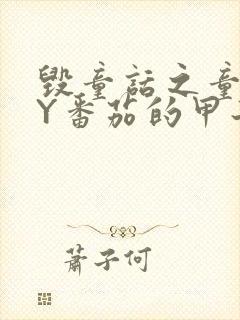 毁童话之童
Y番茄的甲
萧子何